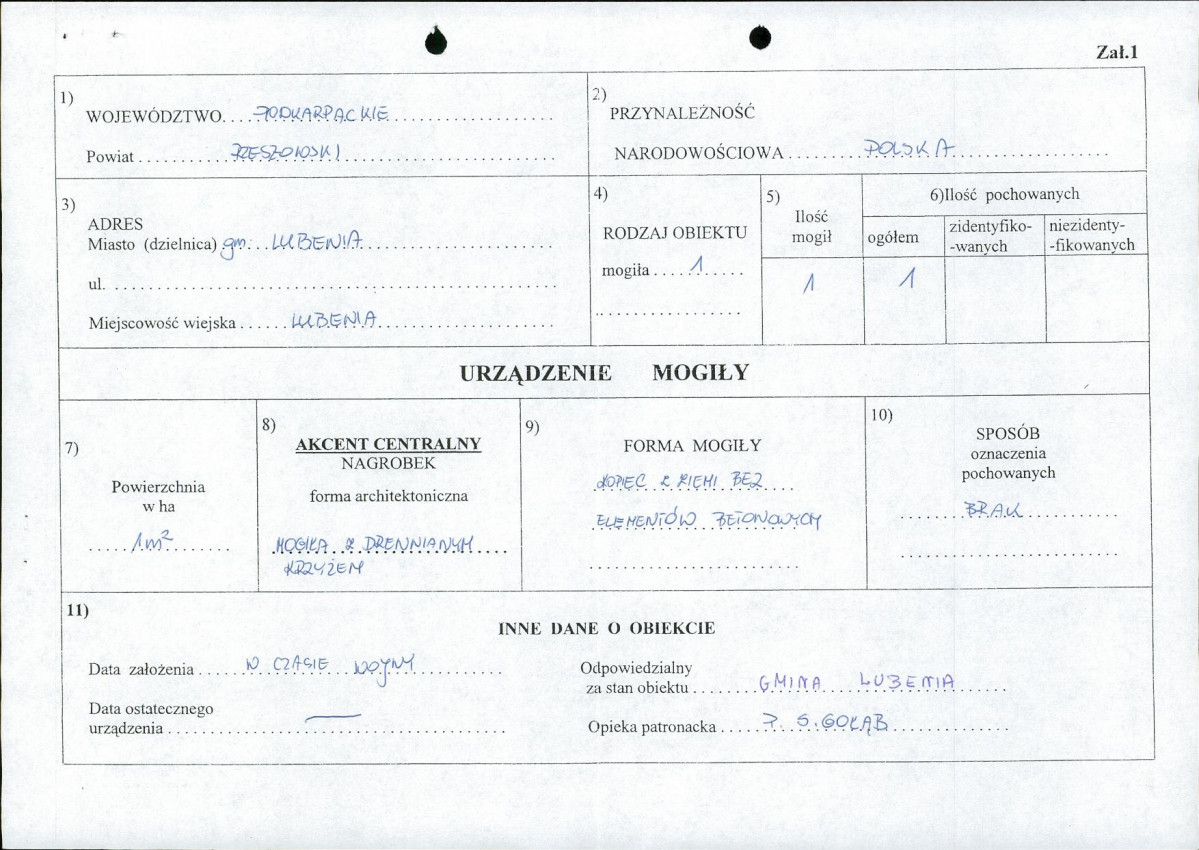 Zał.1
1)
WOJEWÓDZTWO....PODKARPACKIE
Powiat............RZESZOWSKI
2)
PRZYNALEŻNOŚĆ
NARODOWOŚCIOWA..........POLSKA
3)
ADRES
Miasto (dzielnica) gm. LUBENIA
ul.
Miejscowość wiejska......LUBENIA
4)
RODZAJ OBIEKTU
mogiła....1
5)
Ilość
mogił
1
6)Ilość pochowanych
ogółem
1
zidentyfiko-
-wanych
niezidenty-
-fikowanych
URZĄDZENIE MOGIŁY
7)
Powierzchnia
w ha
1m²
8)
AKCENT CENTRALNY
NAGROBEK
forma architektoniczna
MOGIŁA Z DREWNIANYM
KRZYŻEM
9)
FORMA MOGIŁY
KOPIEC Z ZIEMI BEZ
ELEMENTÓW BETONOWYCH
10)
SPOSÓB
oznaczenia
pochowanych
BRAK
11)
INNE DANE O OBIEKCIE
Data założenia.....W CZASIE WOJNY
Data ostatecznego
urządzenia........—
Odpowiedzialny
za stan obiektu..........GMINA LUBENIA
Opieka patronacka......P. S. GOŁĄB